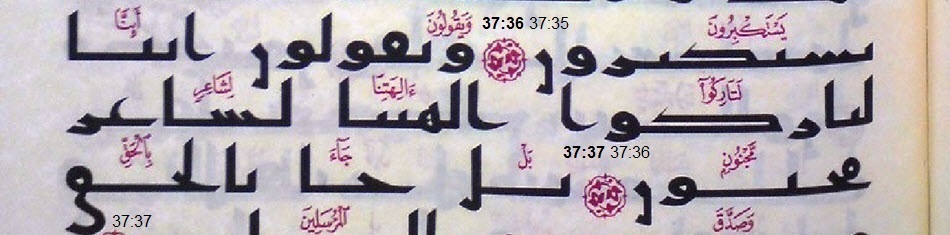 يَسْتَكْبِرُونَ 37:35 37:36 وَيَقُولُونَ أَئِنَّا
يستكبرون ويقولون اينا
لَتَارِكُوٓا ءَالِهَتِنَا لِشَاعِرٍ
لتاركوا الهتنا لشاعر
مَّجْنُونٍ 37:36 37:37 بَلْ جَآءَ بِٱلْحَقِّ
مجنون بل جا بالحق
وَصَدَّقَ ٱلْمُرْسَلِينَ 37:37